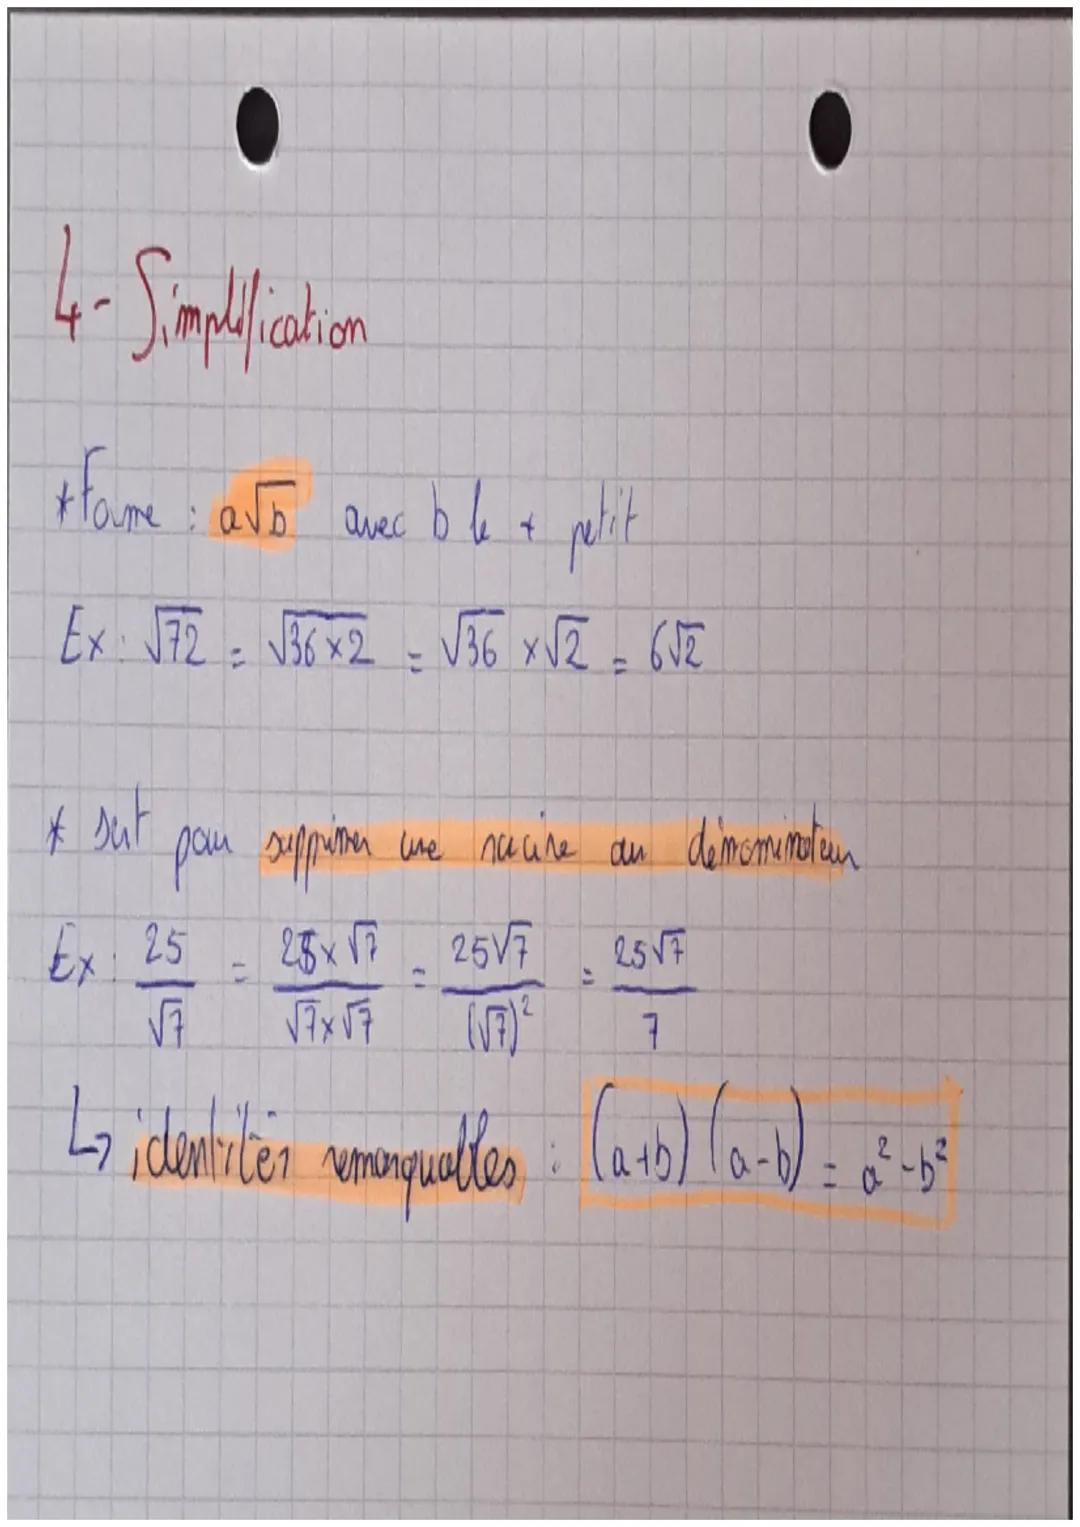 4- Simplification
* Forme : a√b avec b le + petit
Ex : √72 = √36×2 = √36 × √2 = 6√2
* sert pour supprimer une racine au dénominateur
Ex : 25/√7 = 25×√7/√7×√7 = 25√7/(√7)² = 25√7/7
↳ identités remarquables : (a+b)(a-b) = a²-b²